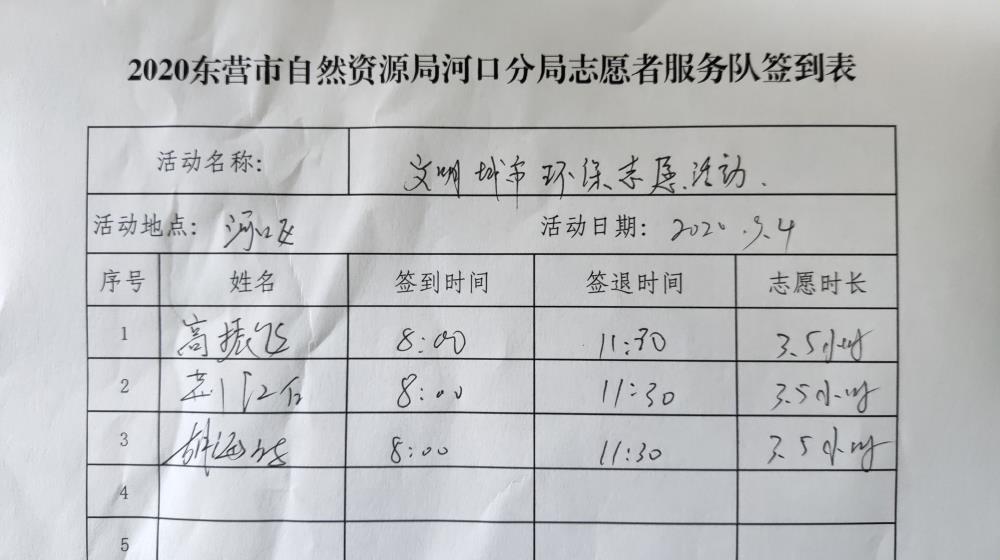 2020东营市自然资源局河口分局志愿者服务队签到表
活动名称: 文明城市环保志愿活动.
活动地点: 河口区 活动日期: 2020.3.4
序号 姓名 签到时间 签退时间 志愿时长
1 高振飞 8:00 11:30 3.5小时
2 8:00 11:30 3.5小时
3 胡海 8:00 11:30 3.5小时
4
5